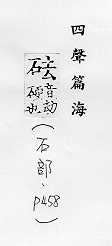 四聲篇海
砝音劫硬也
(石部、p458)